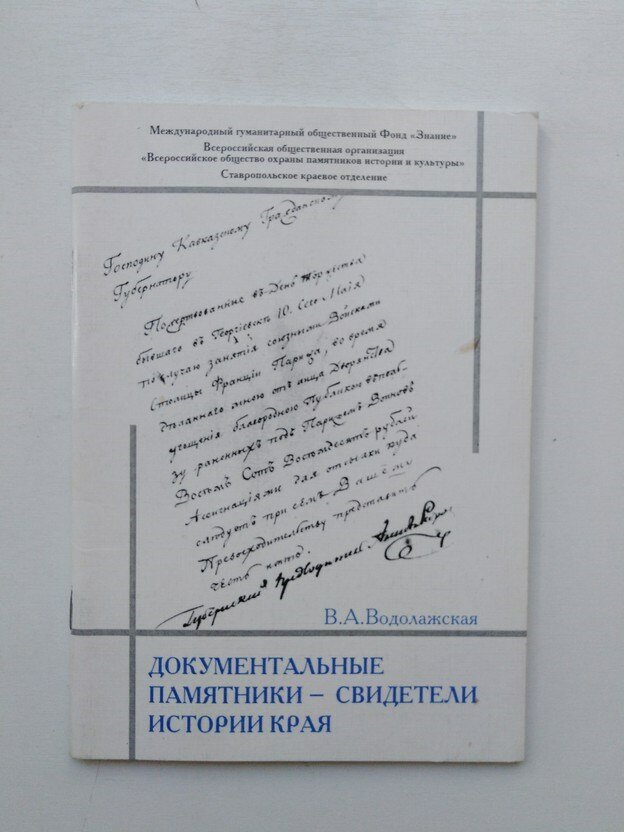 Международный гуманитарный общественный Фонд «Знание»
Всероссийская общественная организация
«Всероссийское общество охраны памятников истории и культуры»
Ставропольское краевое отделение
Господину Кавказскому Гражданскому
Губернатору
Пожертвованные въ День Торжества
бывшаго въ Георгіевскѣ 10. Сего Маія
по случаю занятія союзными Войсками
Столицы Франціи Парижа, во время
сдѣланнаго мною отъ лица Дворянства
угощенія благородною Публикою въ поль
зу раненныхъ подъ Парижемъ Воиновъ
Восемь Сотъ Восемьдесятъ рублей
Ассигнаціями для отсылки куда
слѣдуетъ при семъ Вашему
Превосходительству представить
честь имѣю.
Губернскій Предводитель
В.А.Водолажская
ДОКУМЕНТАЛЬНЫЕ
ПАМЯТНИКИ – СВИДЕТЕЛИ
ИСТОРИИ КРАЯ